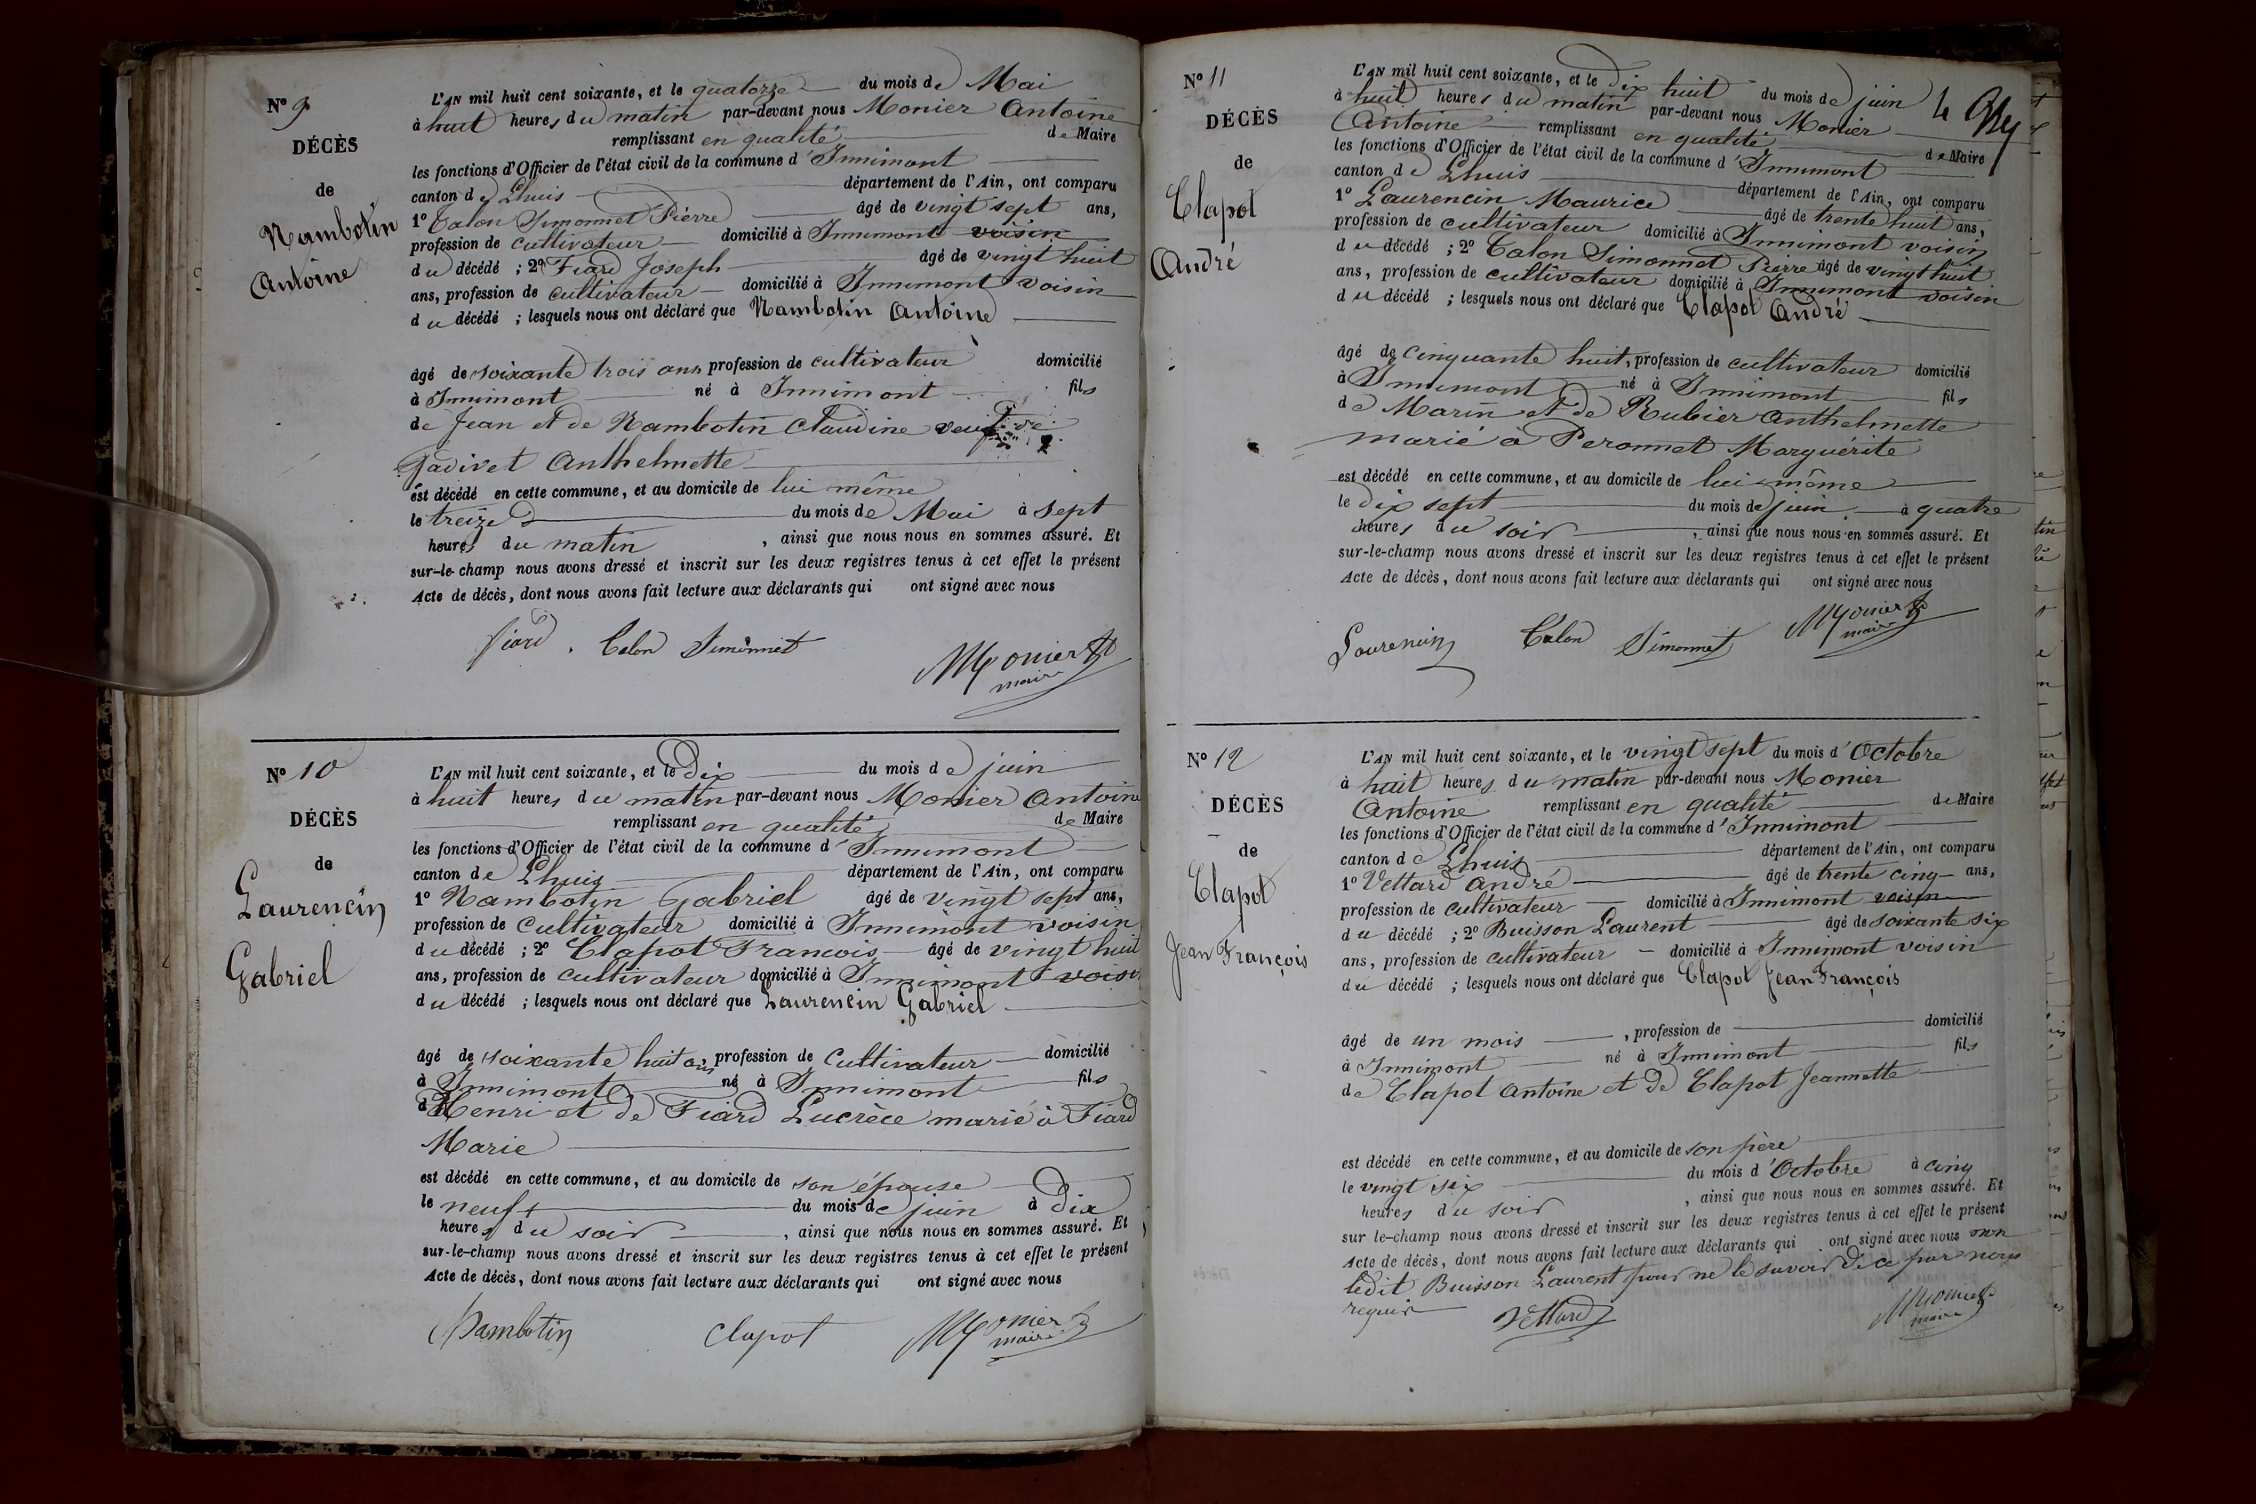 N° 9
DÉCÈS
de
Nambotin
Antoine
L'AN mil huit cent soixante, et le quatorze du mois de Mai
à huit heures du matin par-devant nous Monier Antoine
remplissant en qualité de Maire
les fonctions d'Officier de l'état civil de la commune d'Innimont
canton de Lhuis département de l'Ain, ont comparu
1° Talon Simonnet Pierre âgé de vingt sept ans,
profession de cultivateur domicilié à Innimont voisin
du décédé ; 2° Fiard Joseph âgé de vingt huit
ans, profession de cultivateur domicilié à Innimont voisin
du décédé ; lesquels nous ont déclaré que Nambotin Antoine
âgé de soixante trois ans profession de cultivateur domicilié
à Innimont né à Innimont fils
de Jean et de Nambotin Claudine veuf de
Gadivet Anthelmette
est décédé en cette commune, et au domicile de lui même
le treize du mois de Mai à sept
heures du matin , ainsi que nous nous en sommes assuré. Et
sur-le-champ nous avons dressé et inscrit sur les deux registres tenus à cet effet le présent
Acte de décès, dont nous avons fait lecture aux déclarants qui ont signé avec nous
fiard . Talon Simonnet Monier
maire
N° 10
DÉCÈS
de
Laurencin
Gabriel
L'AN mil huit cent soixante, et le Dix du mois de juin
à huit heures du matin par-devant nous Monier Antoine
remplissant en qualité de Maire
les fonctions d'Officier de l'état civil de la commune d'Innimont
canton de Lhuis département de l'Ain, ont comparu
1° Nambotin Gabriel âgé de vingt sept ans,
profession de cultivateur domicilié à Innimont voisin
du décédé ; 2° Clapot Francois âgé de vingt huit
ans, profession de cultivateur domicilié à Innimont voisin
du décédé ; lesquels nous ont déclaré que Laurencin Gabriel
âgé de soixante huit ans, profession de cultivateur domicilié
à Innimont né à Innimont fils
d'Henri et de Fiard Lucrèce marié à Fiard
Marie
est décédé en cette commune, et au domicile de son épouse
le neuf du mois de juin à dix
heures du soir , ainsi que nous nous en sommes assuré. Et
sur-le-champ nous avons dressé et inscrit sur les deux registres tenus à cet effet le présent
Acte de décès, dont nous avons fait lecture aux déclarants qui ont signé avec nous
Nambotin Clapot Monier
maire
N° 11
DÉCÈS
de
Clapot
André
L'AN mil huit cent soixante, et le dix huit du mois de juin
à huit heures du matin par-devant nous Monier
Antoine remplissant en qualité de Maire
les fonctions d'Officier de l'état civil de la commune d'Innimont
canton de Lhuis département de l'Ain, ont comparu
1° Laurencin Maurice âgé de trente huit ans,
profession de cultivateur domicilié à Innimont voisin
du décédé ; 2° Talon Simonnet Pierre âgé de vingt huit
ans, profession de cultivateur domicilié à Innimont voisin
du décédé ; lesquels nous ont déclaré que Clapot André
âgé de cinquante huit, profession de cultivateur domicilié
à Innimont né à Innimont fils
de Marin et de Rubier Anthelmette
marié à Peronnet Marguérite
est décédé en cette commune, et au domicile de lui même
le dix sept du mois de juin à quatre
heures du soir , ainsi que nous nous en sommes assuré. Et
sur-le-champ nous avons dressé et inscrit sur les deux registres tenus à cet effet le présent
Acte de décès, dont nous avons fait lecture aux déclarants qui ont signé avec nous
Laurencin Talon Simonnet Monier
maire
N° 12
DÉCÈS
de
Clapot
Jean François
L'AN mil huit cent soixante, et le vingt sept du mois d'Octobre
à huit heures du matin par-devant nous Monier
Antoine remplissant en qualité de Maire
les fonctions d'Officier de l'état civil de la commune d'Innimont
canton de Lhuis département de l'Ain, ont comparu
1° Vettard André âgé de trente cinq ans,
profession de cultivateur domicilié à Innimont voisin
du décédé ; 2° Buisson Laurent âgé de soixante six
ans, profession de cultivateur domicilié à Innimont voisin
du décédé ; lesquels nous ont déclaré que Clapot Jean François
âgé de un mois , profession de domicilié
à Innimont né à Innimont fils
de Clapot Antoine et de Clapot Jeannette
est décédé en cette commune, et au domicile de son père
le vingt six du mois d'Octobre à cinq
heures du soir , ainsi que nous nous en sommes assuré. Et
sur le-champ nous avons dressé et inscrit sur les deux registres tenus à cet effet le présent
Acte de décès, dont nous avons fait lecture aux déclarants qui ont signé avec nous non
ledit Buisson Laurent pour ne le savoir de ce par nous
requis Vettard Monier
maire